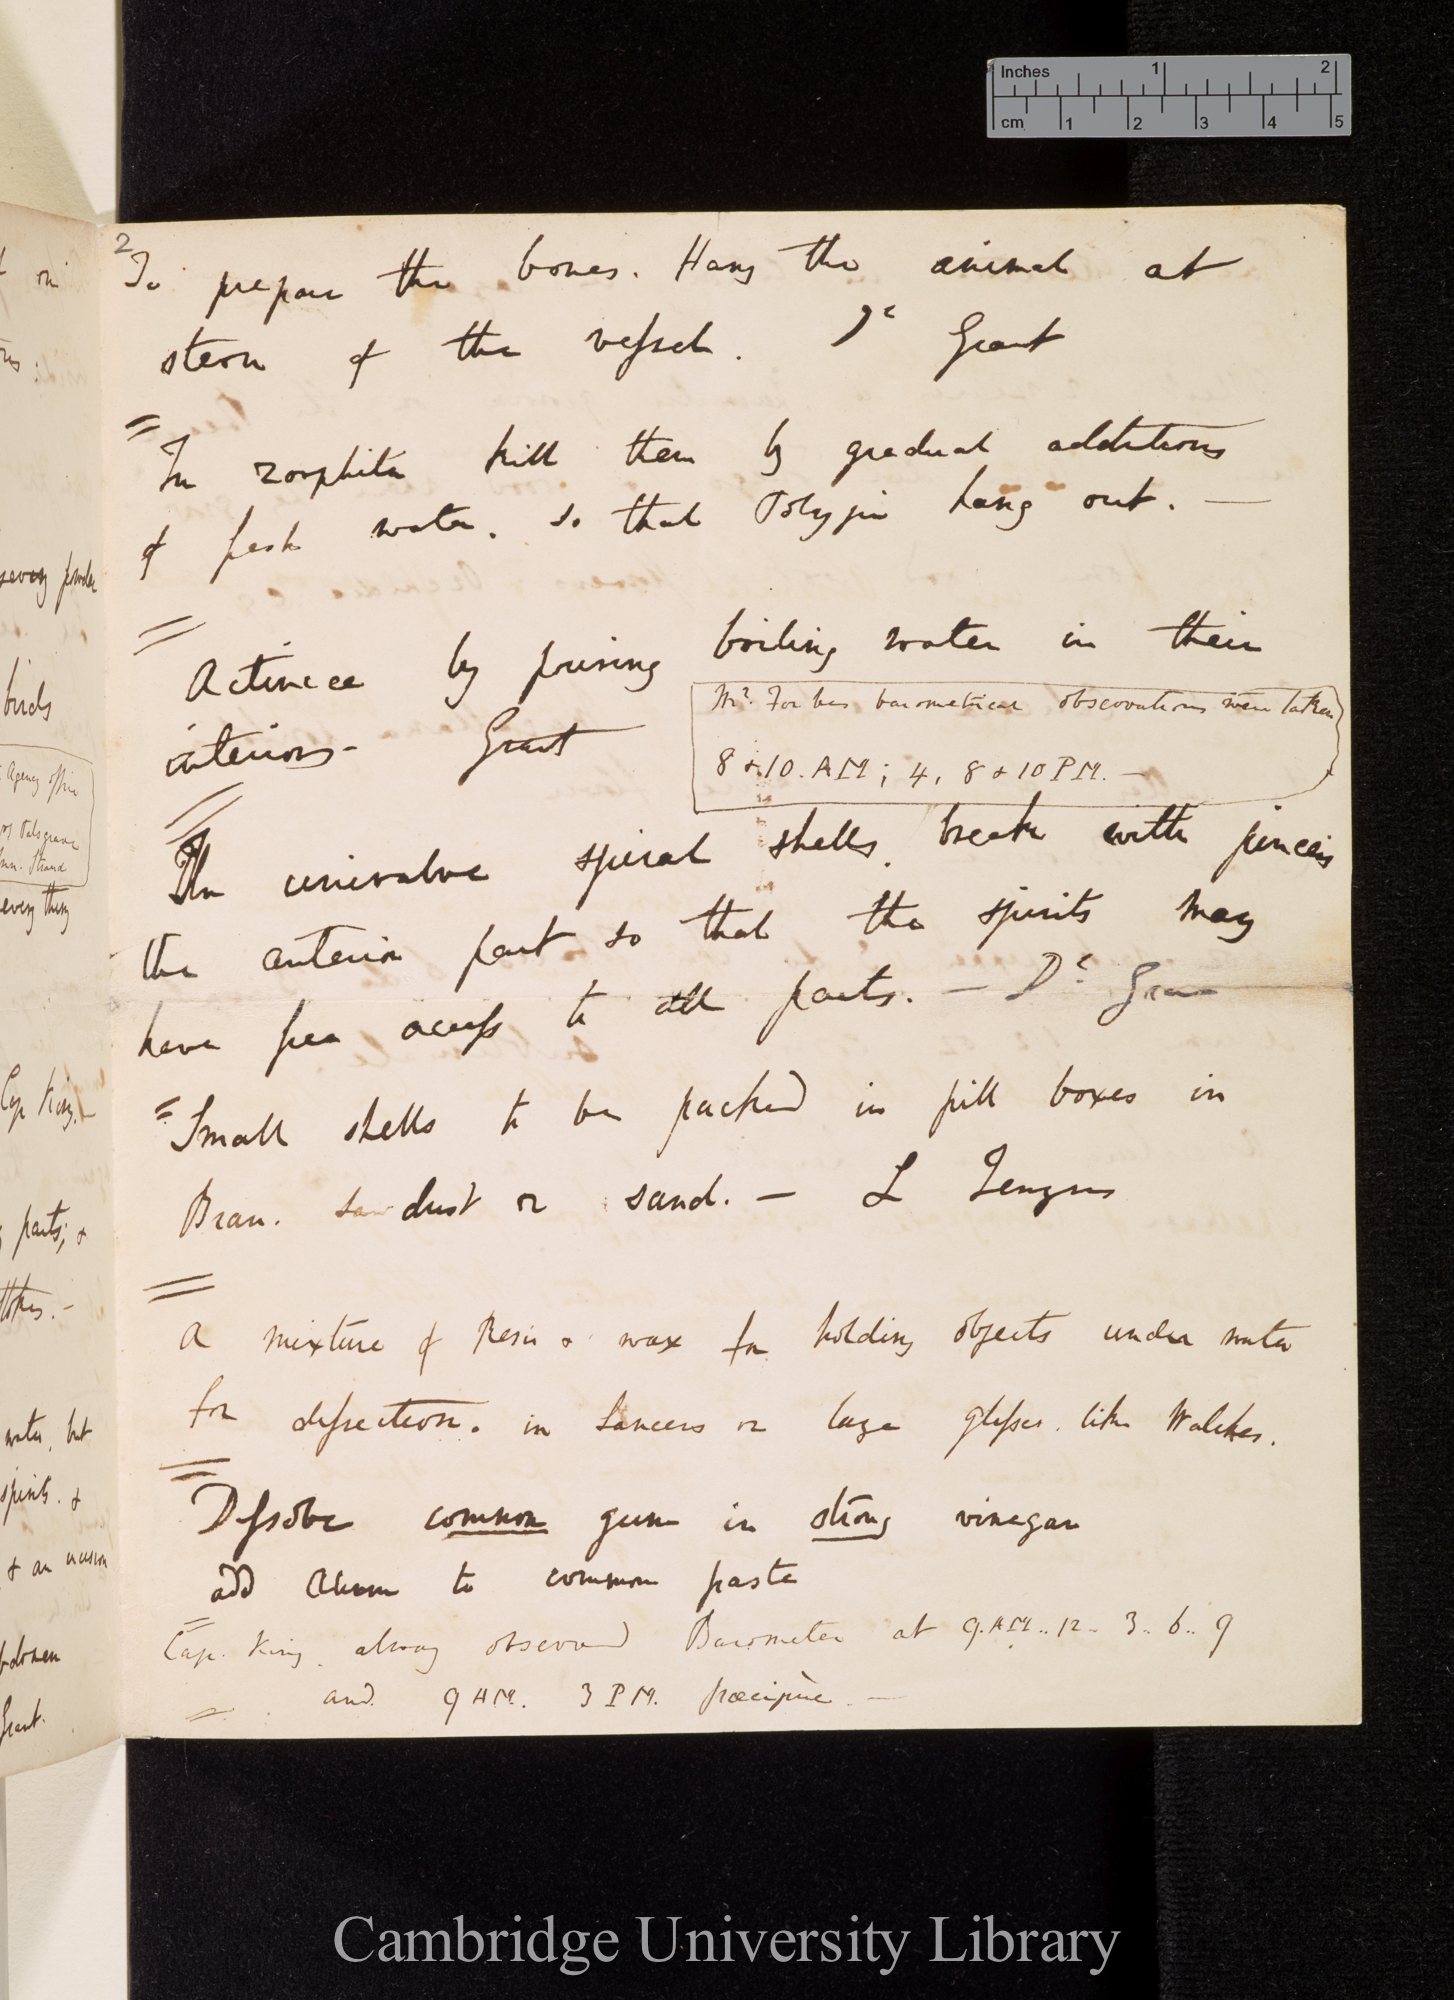 Inches 1 2
cm 1 2 3 4 5
2
To prepare the bones. Hang the animal at
stern of the vessel. Dr Grant
=
In zoophites kill them by gradual additions
of fresh water, so that Polypi hang out. —
=
Actineæ by pouring boiling water in their
interiors — Grant
Mr. Forbes barometrical observations were taken
8 & 10. AM; 4, 8 & 10 PM. —
=
In univalve spiral shells, break with pincers
the anterior part so that the spirits may
have free access to all parts. — Dr Grant
=
Small shells to be packed in pill boxes in
Bran. Sawdust or sand. — L Jenyns
=
A mixture of Resin & wax for holding objects under water
for dissection. in Saucers or large glasses. like Watches.
=
Dissolve common gum in strong vinegar
add Alum to common paste
=
Cap. King always observed Barometer at 9.AM.. 12.. 3.. 6.. 9
= and 9 AM. 3 PM. præcipuè. —
every powder
birds
Agency office
Strand
every thing
Cap King. —
parts; &
water, but
spirits. &
& an incision
abdomen
Grant.
Cambridge University Library